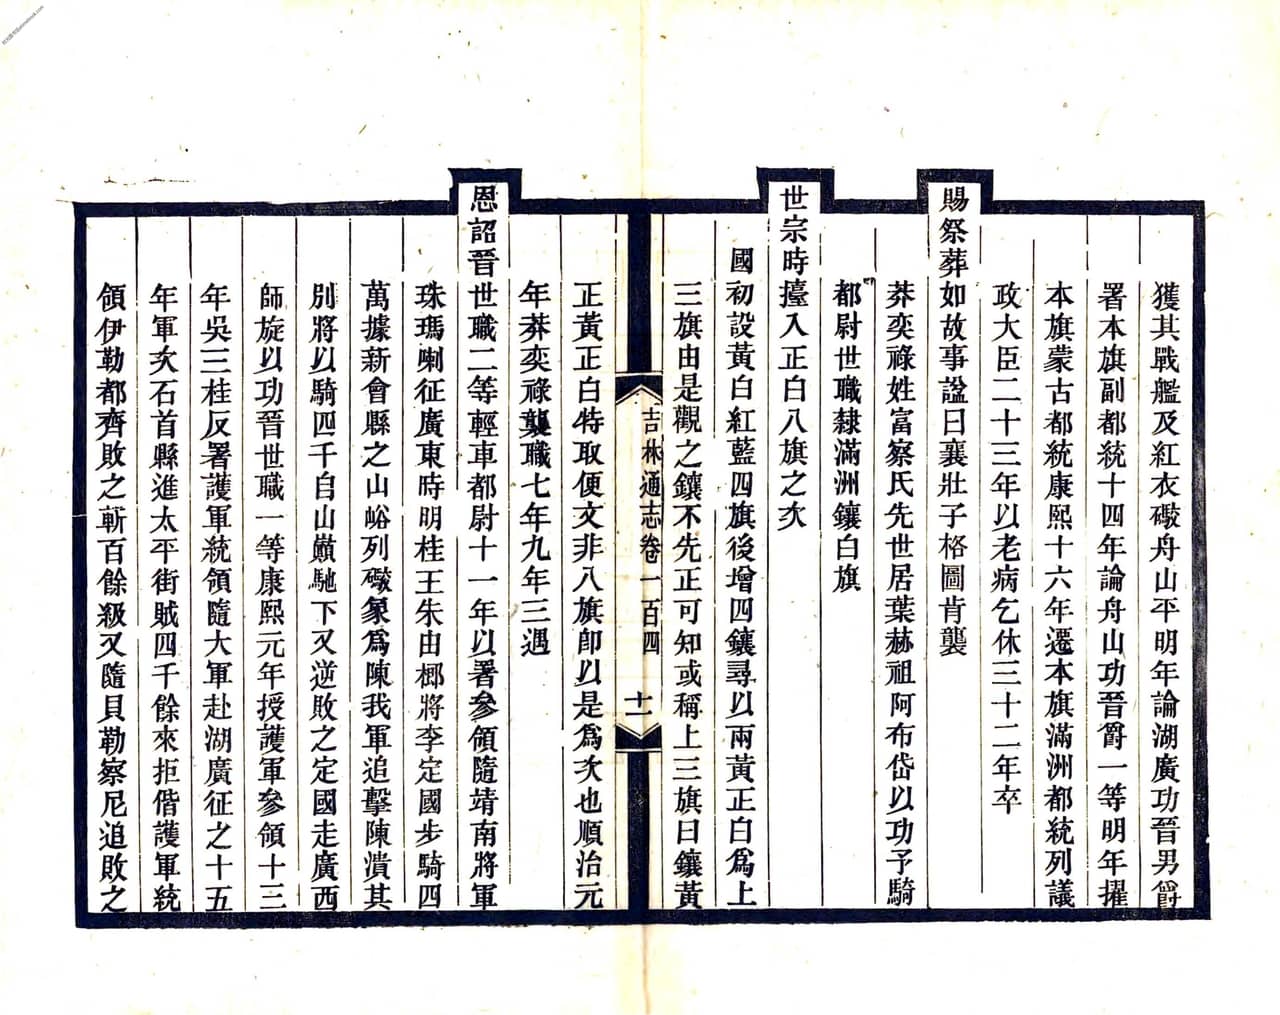 獲其戰艦及紅衣礮舟山平明年論湖廣功晉男爵
署本旗副都統十四年論舟山功晉爵一等明年擢
本旗蒙古都統康熙十六年遷本旗滿洲都統列議
政大臣二十三年以老病乞休三十二年卒
賜祭葬如故事諡曰襄壯子格圖肯襲
莽奕祿姓富察氏先世居葉赫祖阿布岱以功予騎
都尉世職隸滿洲鑲白旗
世宗時擡入正白八旗之次
國初設黃白紅藍四旗後增四鑲尋以兩黃正白爲上
三旗由是觀之鑲不先正可知或稱上三旗曰鑲黃
吉林通志卷一百四 十一
正黃正白特取便文非八旗卽以是爲次也順治元
年莽奕祿襲職七年九年三遇
恩詔晉世職二等輕車都尉十一年以署參領隨靖南將軍
珠瑪喇征廣東時明桂王朱由榔將李定國步騎四
萬據新會縣之山峪列礮象爲陳我軍追擊陳潰其
別將以騎四千自山巔馳下又逆敗之定國走廣西
師旋以功晉世職一等康熙元年授護軍參領十三
年吳三桂反署護軍統領隨大軍赴湖廣征之十五
年軍次石首縣進太平街賊四千餘來拒偕護軍統
領伊勒都齊敗之斬百餘級又隨貝勒察尼追敗之